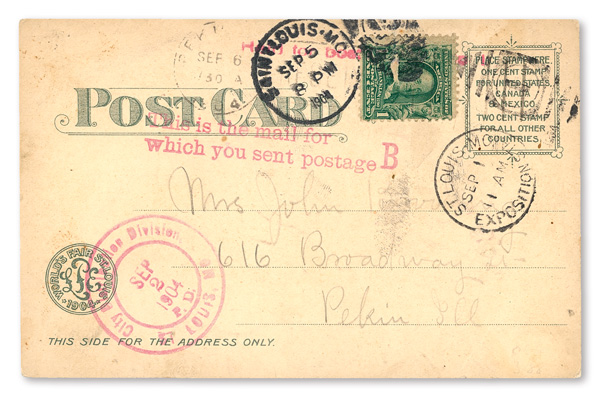 SEP 6
SAINT LOUIS, MO.
SEP 5
8 PM
1904
POST CARD
This is the mail for
which you sent postage B
PLACE STAMP HERE
ONE CENT STAMP
FOR UNITED STATES,
CANADA
& MEXICO.
TWO CENT STAMP
FOR ALL OTHER
COUNTRIES
ST. LOUIS, MO.
SEP 1
11 AM
EXPOSITION
Mrs John
616 Broadway
Pekin Ill
City
Division
LOUIS,
SEP
2
1904
P. D.
WORLD'S FAIR ST. LOUIS
1904
THIS SIDE FOR THE ADDRESS ONLY.